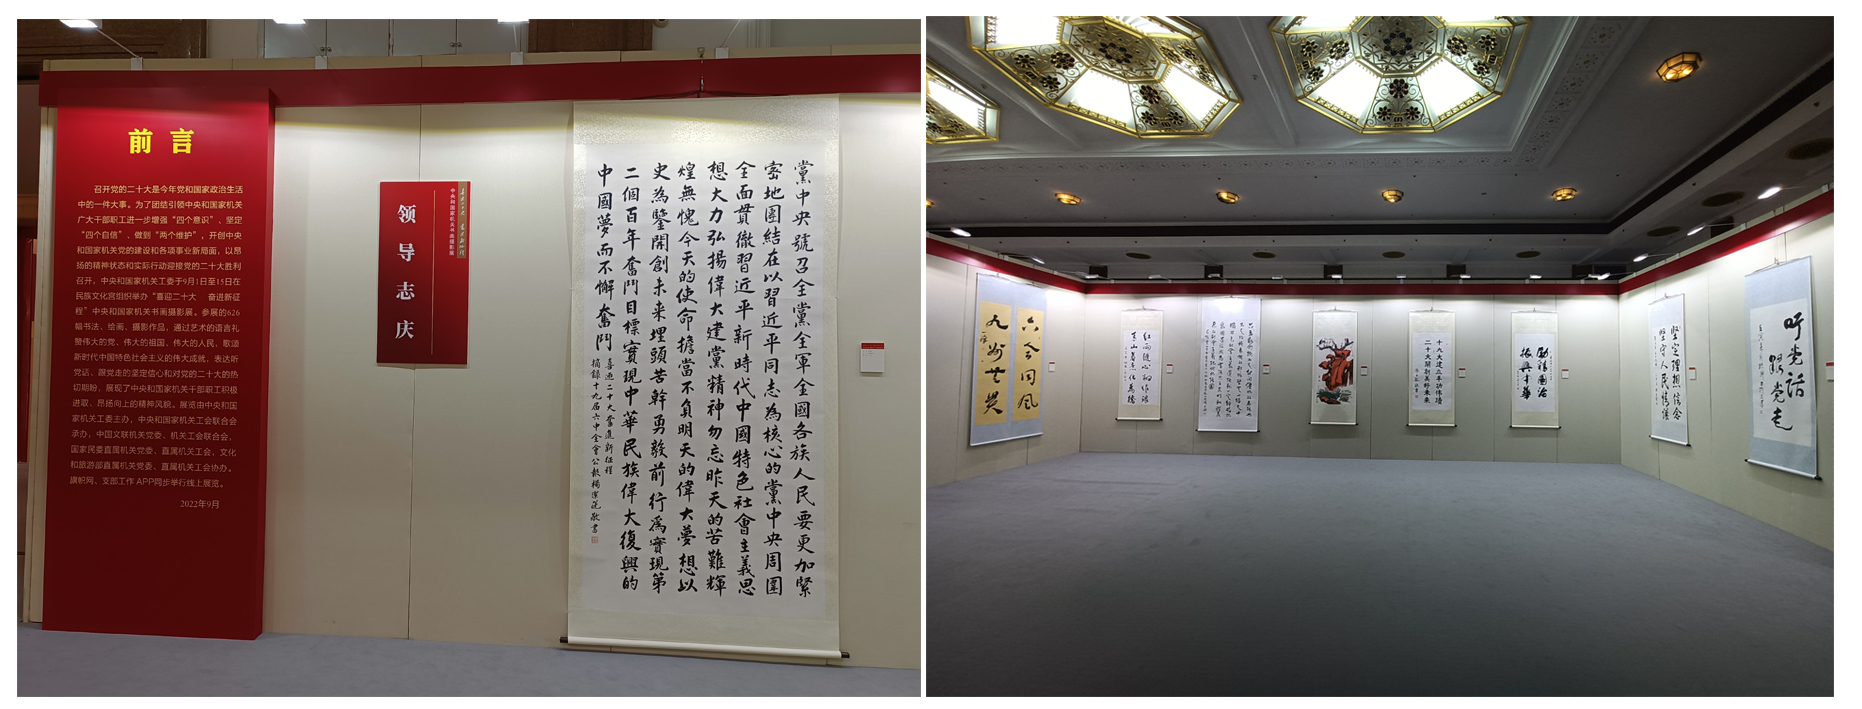 前言
召开党的二十大是今年党和国家政治生活
中的一件大事。为了团结引领中央和国家机关
广大干部职工进一步增强“四个意识”、坚定
“四个自信”、做到“两个维护”,开创中央
和国家机关党的建设和各项事业新局面,以昂
扬的精神状态和实际行动迎接党的二十大胜利
召开,中央和国家机关工委于9月1日至15日在
民族文化宫组织举办“喜迎二十大 奋进新征
程”中央和国家机关书画摄影展。参展的626
幅书法、绘画、摄影作品,通过艺术的语言礼
赞伟大的党、伟大的祖国、伟大的人民,歌颂
新时代中国特色社会主义的伟大成就,表达听
党话、跟党走的坚定信心和对党的二十大的热
切期盼,展现了中央和国家机关干部职工积极
进取、昂扬向上的精神风貌。展览由中央和国
家机关工委主办,中央和国家机关工会联合会
承办,中国文联机关党委、机关工会联合会,
国家民委直属机关党委、直属机关工会,文化
和旅游部直属机关党委、直属机关工会协办。
旗帜网、支部工作APP同步举行线上展览。
2022年9月
中央和国家机关书画摄影展
领导志庆
黨中央號召全黨全軍全國各族人民要更加緊
密地團結在以習近平同志為核心的黨中央周圍
全面貫徹習近平新時代中國特色社會主義思
想大力弘揚偉大建黨精神勿忘昨天的苦難輝
煌無愧今天的使命擔當不負明天的偉大夢想以
史為鑒開創未來埋頭苦幹勇毅前行為實現第
二個百年奮鬥目標實現中華民族偉大復興的
中國夢而不懈奮鬥
喜迎二十大奮進新征程
摘錄十九屆六中全會公報
六合同风
九州共贯
十八大建立丰功伟绩
二十大规划美好未来
励精图治
振兴中华
坚定理想信念
坚守人民情怀
听党话
跟党走